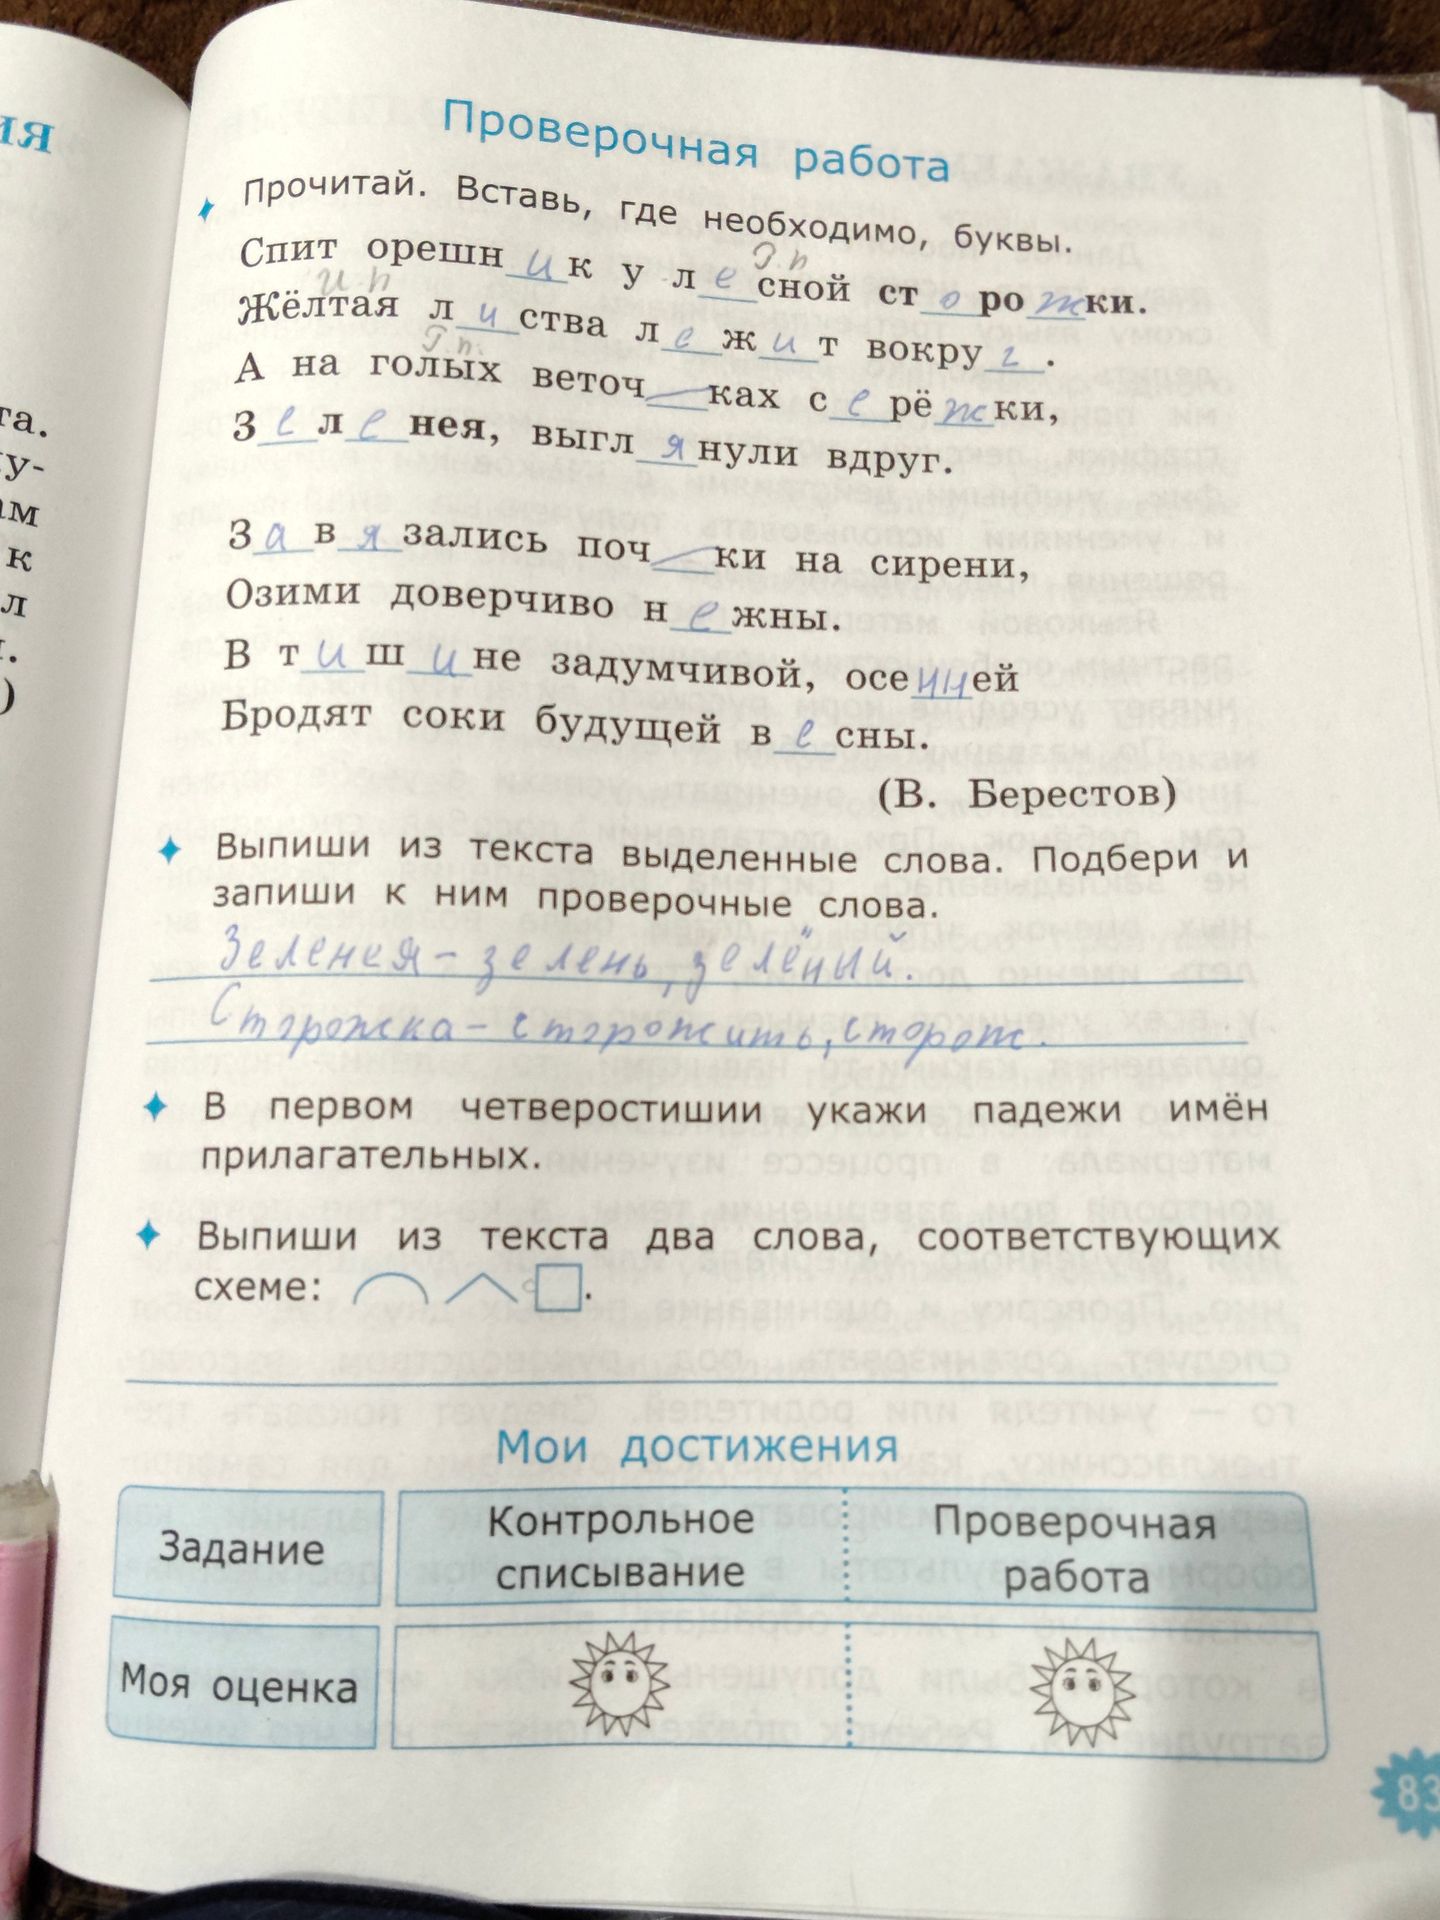 ия
та.
у-
ам
к
л
)
Проверочная работа
Прочитай. Вставь, где необходимо, буквы.
Спит орешн и к у л е сной ст о ро ж ки.
Р.п
И.п
Жёлтая л и ства л е ж и т вокру г .
Р.п.
А на голых веточ ках с е рё ж ки,
З е л е нея, выгл я нули вдруг.
З а в я зались поч ки на сирени,
Озими доверчиво н е жны.
В т и ш и не задумчивой, осе нн ей
Бродят соки будущей в е сны.
(В. Берестов)
Выпиши из текста выделенные слова. Подбери и
запиши к ним проверочные слова.
Зеленея - зелень, зелёный.
Сторожка - сторожить, сторож.
В первом четверостишии укажи падежи имён
прилагательных.
Выпиши из текста два слова, соответствующих
схеме:
Мои достижения
Задание
Контрольное
списывание
Проверочная
работа
Моя оценка
83